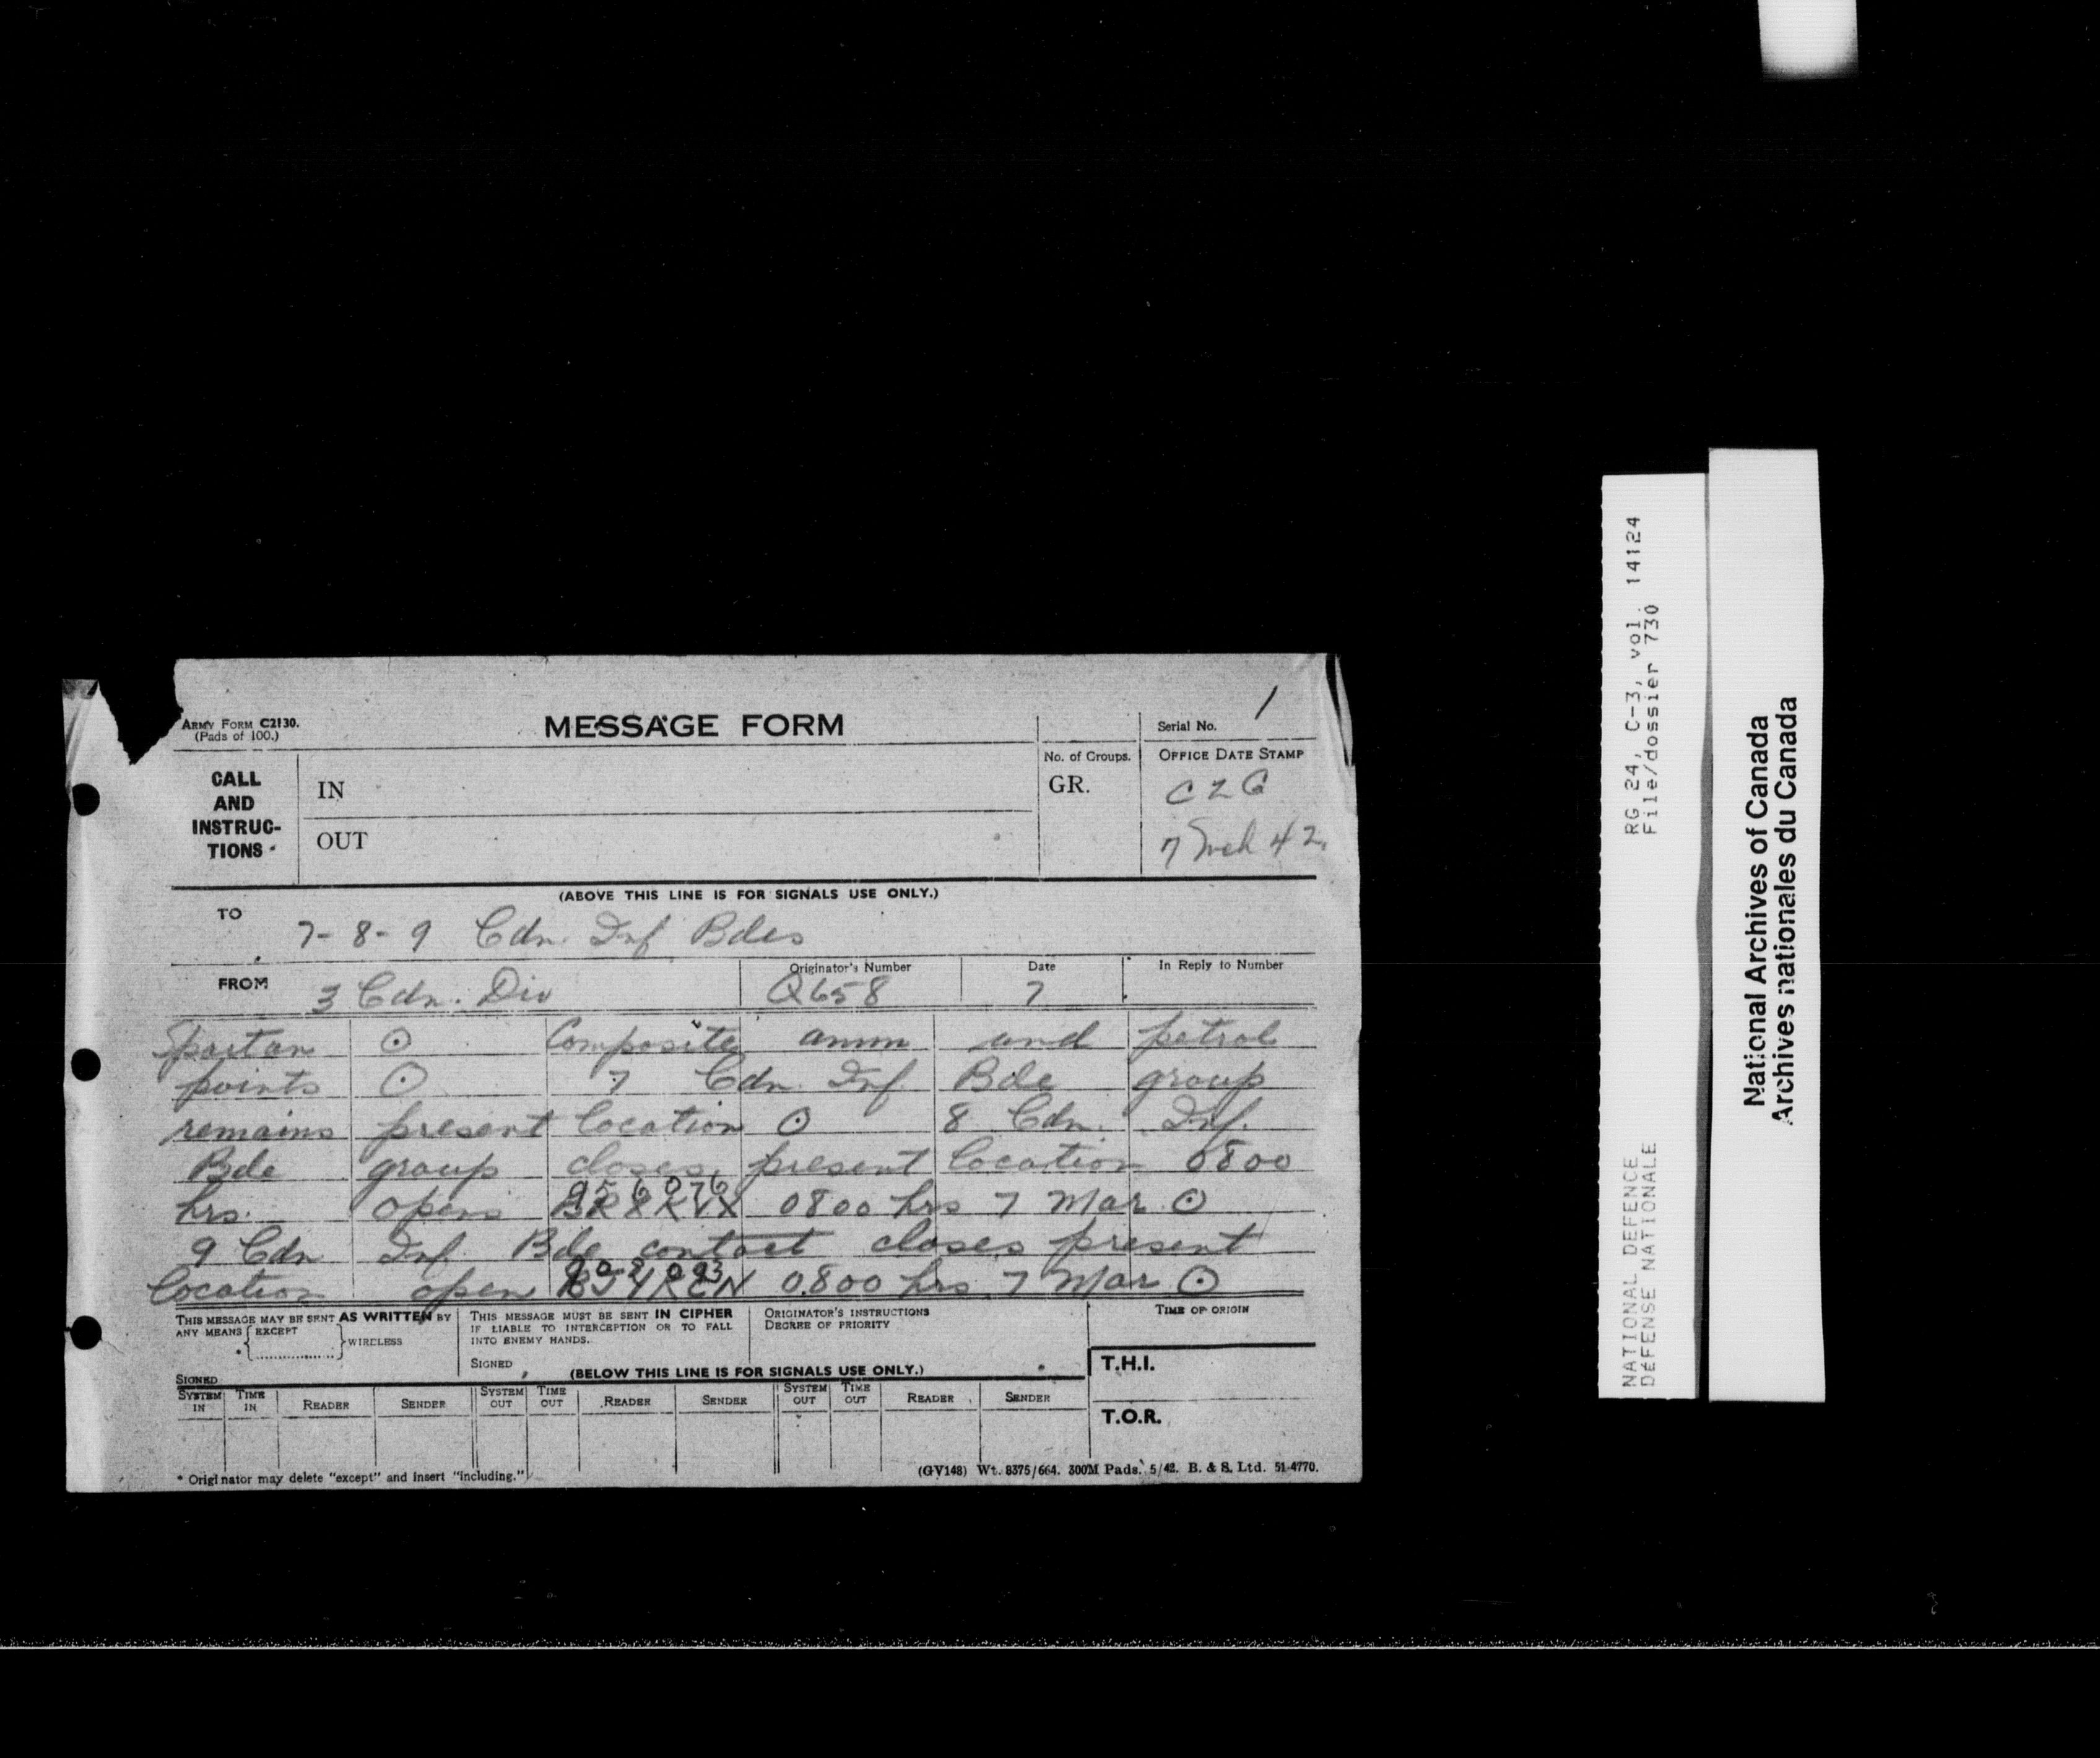 ARMY FORM C2130.
(Pads of 100.)
MESSAGE FORM
Serial No. 1
CALL
AND
INSTRUC-
TIONS
IN
OUT
No. of Groups.
GR.
OFFICE DATE STAMP
C2G
7 Mch 42.
(ABOVE THIS LINE IS FOR SIGNALS USE ONLY.)
TO 7-8-9 Cdn. Inf Bdes
FROM 3 Cdn. Div
Originator's Number
Q658
Date
7
In Reply to Number
Spartan ⊙ Composite amm and petrol
points ⊙ 7 Cdn. Inf. Bde group
remains present location ⊙ 8 Cdn. Inf.
Bde group closes present location 0800
956076
hrs. opens 0800 hrs 7 Mar ⊙
9 Cdn Inf. Bde contact closes present
location open 0800 hrs 7 Mar ⊙
THIS MESSAGE MAY BE SENT AS WRITTEN BY
ANY MEANS { EXCEPT
* {..................} WIRELESS
SIGNED
THIS MESSAGE MUST BE SENT IN CIPHER
IF LIABLE TO INTERCEPTION OR TO FALL
INTO ENEMY HANDS.
SIGNED
ORIGINATOR'S INSTRUCTIONS
DEGREE OF PRIORITY
TIME OF ORIGIN
(BELOW THIS LINE IS FOR SIGNALS USE ONLY.)
T.H.I.
SYSTEM IN TIME IN READER SENDER SYSTEM OUT TIME OUT READER SENDER SYSTEM OUT TIME OUT READER SENDER
T.O.R.
* Originator may delete "except" and insert "including."
(GV148) Wt. 8375/664. 300M Pads. 5/42. B. & S. Ltd. 51-4770.
NATIONAL DEFENCE RG 24, C-3, vol. 14124
DÉFENSE NATIONALE File/dossier 730
National Archives of Canada
Archives nationales du Canada